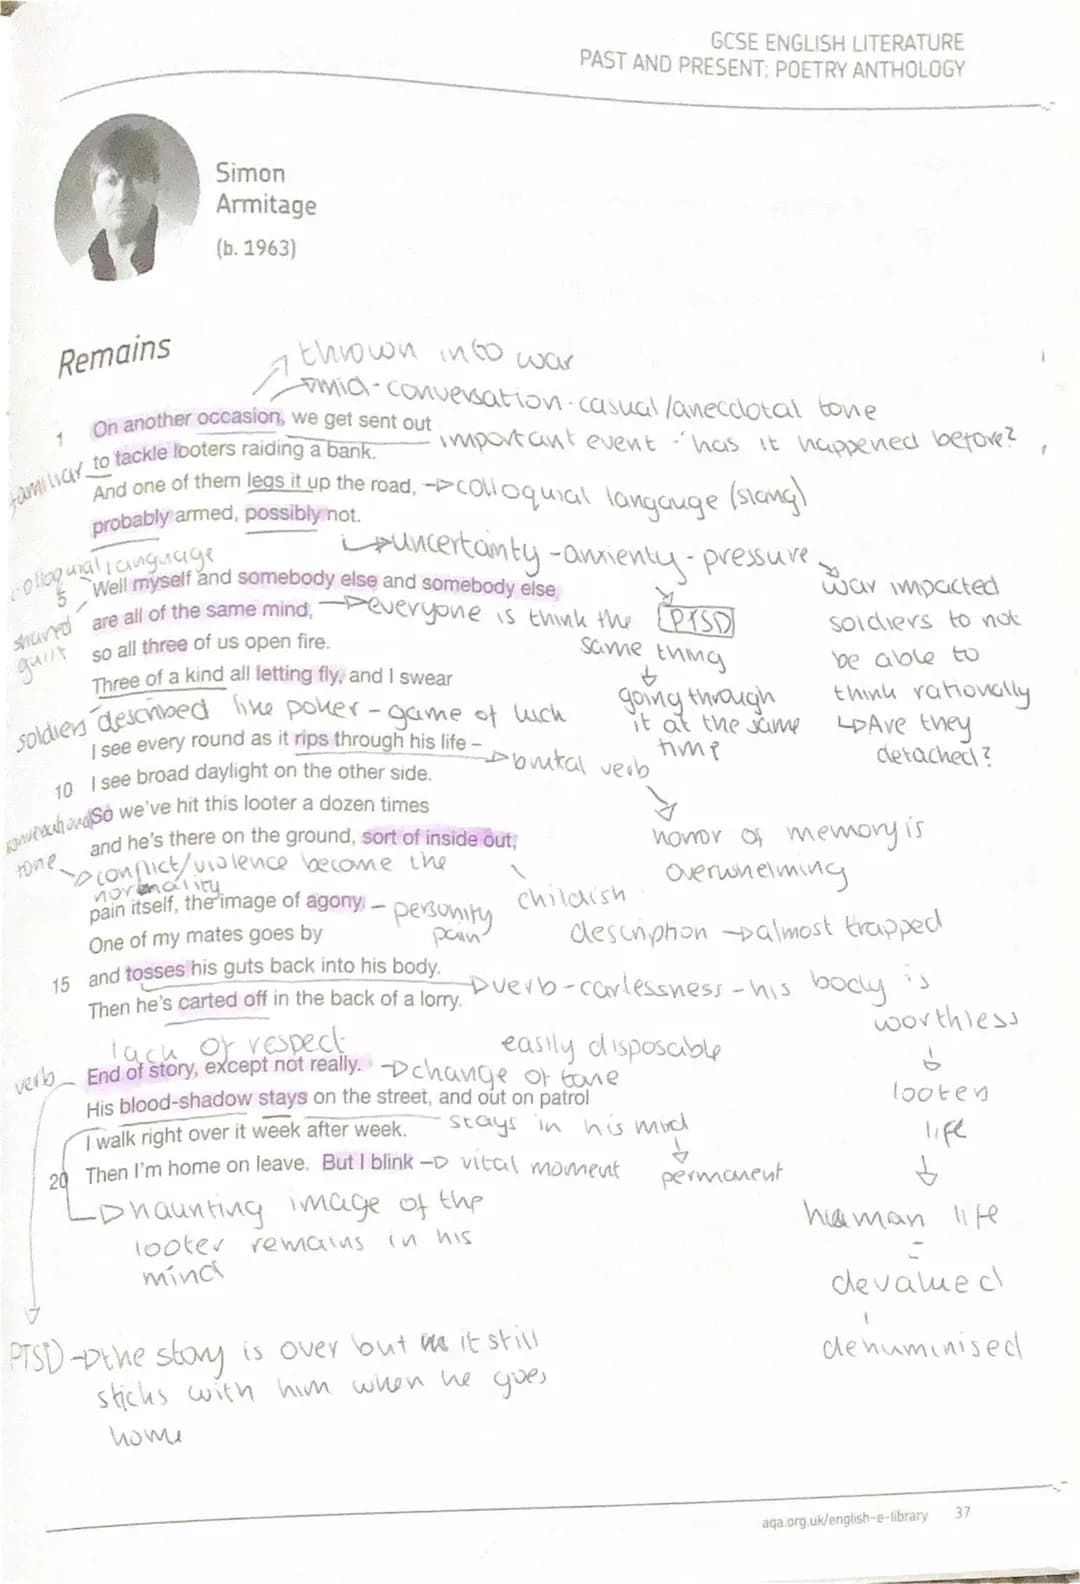 GCSE ENGLISH LITERATURE
PAST AND PRESENT: POETRY ANTHOLOGY
Simon
Armitage
(b. 1963)
Remains
thrown into war
mid-conversation-casual/anecdotal tone
1 On another occasion, we get sent out
important event - has it happened before?
familiar
to tackle looters raiding a bank.
And one of them legs it up the road, colloquial langauge (slang)
probably armed, possibly not.
uncertainty-anxienty-pressure
colloquial language
5 Well myself and somebody else and somebody else
shared guilt
are all of the same mind, everyone is think the same thing
PTSD
going through it at the same time
war impacted
soldiers to not
be able to
think rationally
Are they
detached?
so all three of us open fire.
Three of a kind all letting fly, and I swear
soldiers described like poker-game of luck
I see every round as it rips through his life –
brutal verb
horror of memory is
overwhelming
10 I see broad daylight on the other side.
So we've hit this looter a dozen times
conversational tone
and he's there on the ground, sort of inside out,
conflict/violence become the
normality
childish
description almost trapped
pain itself, the image of agony. - personify
pain
One of my mates goes by
15 and tosses his guts back into his body.
verb-carlessness-his body is
worthless
looters
life
human life
=
devalued
dehuminised
Then he's carted off in the back of a lorry.
lack of respect
easily disposable
verb
End of story, except not really. change of tone
His blood-shadow stays on the street, and out on patrol
I walk right over it week after week.
stays in his mind
permanent
20 Then I'm home on leave. But I blink vital moment
haunting image of the
looter remains in his
mind
PTSD the story is over but it still
sticks with him when he goes
home
aqa.org.uk/english-e-library 37